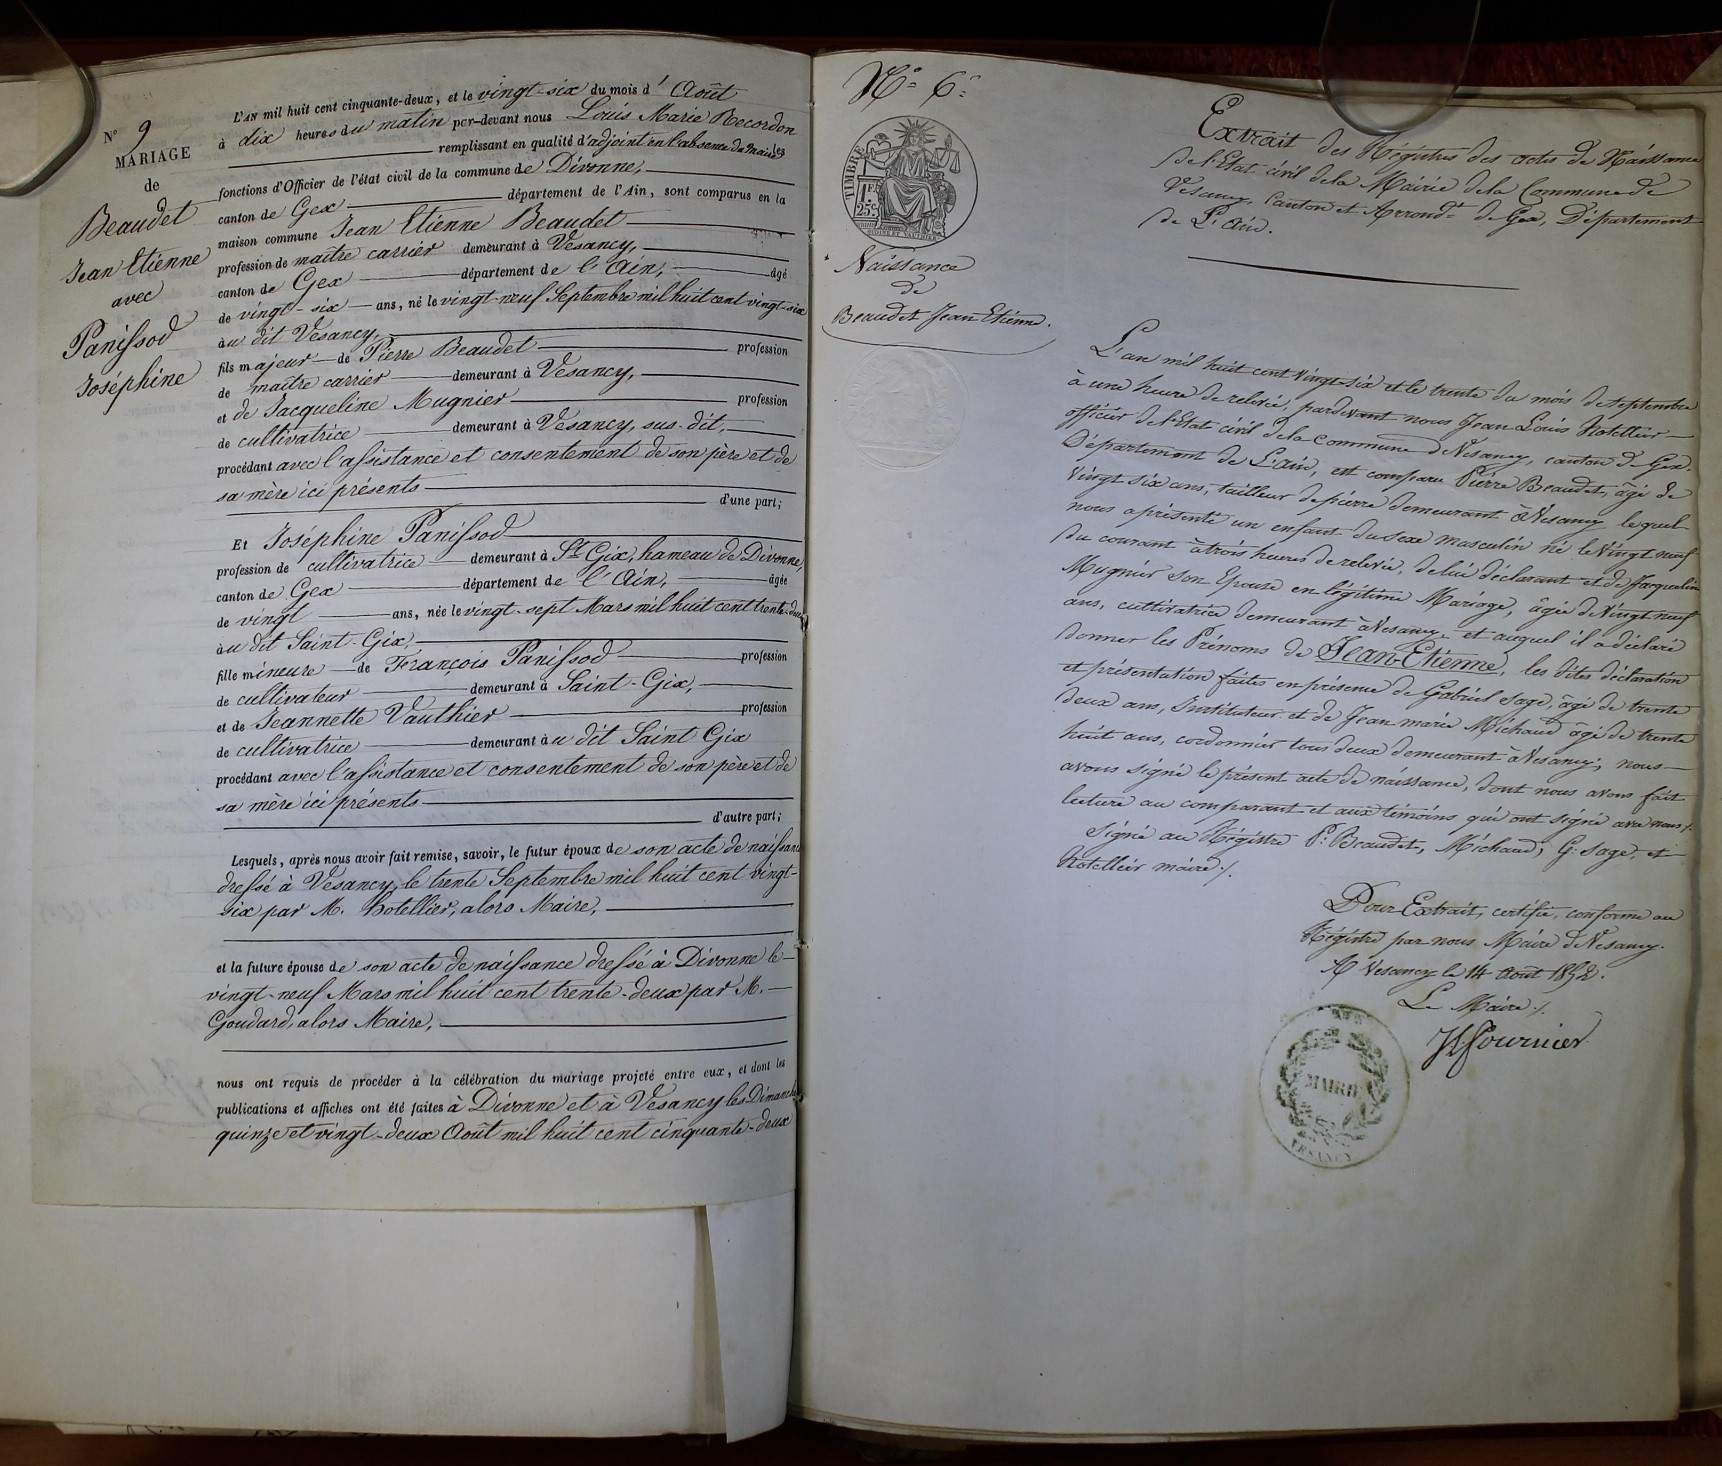 N° 9
MARIAGE
de
Beaudet
Jean Etienne
avec
Panissod
Joséphine
L'AN mil huit cent cinquante-deux, et le vingt-six du mois d'Août
à dix heures du matin par-devant nous Louis Marie Recordon
remplissant en qualité d'adjoint en l'absence du maire les
fonctions d'Officier de l'état civil de la commune de Divonne,
canton de Gex département de l'Ain, sont comparus en la
maison commune Jean Etienne Beaudet
profession de maître carrier demeurant à Vesancy,
canton de Gex département de l'Ain, âgé
de vingt-six ans, né le vingt-neuf Septembre mil huit cent vingt-six
au dit Vesancy,
fils majeur de Pierre Beaudet profession
de maître carrier demeurant à Vesancy,
et de Jacqueline Mugnier profession
de cultivatrice demeurant à Vesancy, sus-dit,
procédant avec l'assistance et consentement de son père et de
sa mère ici présents
d'une part;
Et Joséphine Panissod
profession de cultivatrice demeurant à St Gix, hameau de Divonne,
canton de Gex département de l'Ain, âgée
de vingt ans, née le vingt-sept Mars mil huit cent trente-deux
au dit Saint-Gix,
fille mineure de François Panissod profession
de cultivateur demeurant à Saint-Gix,
et de Jeannette Vauthier profession
de cultivatrice demeurant au dit Saint Gix
procédant avec l'assistance et consentement de son père et de
sa mère ici présents
d'autre part;
Lesquels, après nous avoir fait remise, savoir, le futur époux de son acte de naissance
dressé à Vesancy, le trente Septembre mil huit cent vingt-
six par M. hotellier, alors Maire,
et la future épouse de son acte de naissance dressé à Divonne le
vingt-neuf Mars mil huit cent trente-deux par M.
Goudard, alors Maire,
nous ont requis de procéder à la célébration du mariage projeté entre eux, et dont les
publications et affiches ont été faites à Divonne et à Vesancy les Dimanches
quinze et vingt-deux Août mil huit cent cinquante-deux
N° 6
TIMBRE
25c
Naissance
de
Beaudet Jean Etienne.
Extrait des Régistres des actes de Naissance
de l'Etat civil de la Mairie de la Commune de
Vesancy, Canton et Arrondt de Gex, Département
de L'ain.
L'an mil huit cent vingt-six et le trente du mois de septembre
à une heure de relevée, pardevant nous Jean Louis hotellier
officier de l'Etat civil de la commune de Vesancy, canton de Gex.
Département de L'ain, est comparu Pierre Beaudet, âgé de
vingt six ans, tailleur de pierre demeurant à Vesancy lequel
nous a présenté un enfant du sexe masculin né le vingt neuf
du courant à trois heures de relevée, de lui déclarant et de Jacqueline
Mugnier son Epouse en légitime Mariage, âgée de vingt neuf
ans, cultivatrice demeurant à Vesancy et auquel il a déclaré
donner les Prénoms de Jean-Etienne, les dites déclaration
et présentation faites en présence de Gabriel sage, âgé de trente
deux ans, Instituteur et de Jean marie Michaud âgé de trente
huit ans, cordonnier tous deux demeurant à Vesancy, nous
avons signé le présent acte de naissance, dont nous avons fait
lecture au comparant et aux témoins qui ont signé avec nous /.
signé au Régistre P. Beaudet, Michaud, G. sage, et
hotellier maire /.
Pour Extrait, certifié, conforme au
Régistre par nous Maire de Vesancy.
A Vesancy le 14 Août 1852.
Le Maire /.
Fournier
MAIRIE
VESANCY